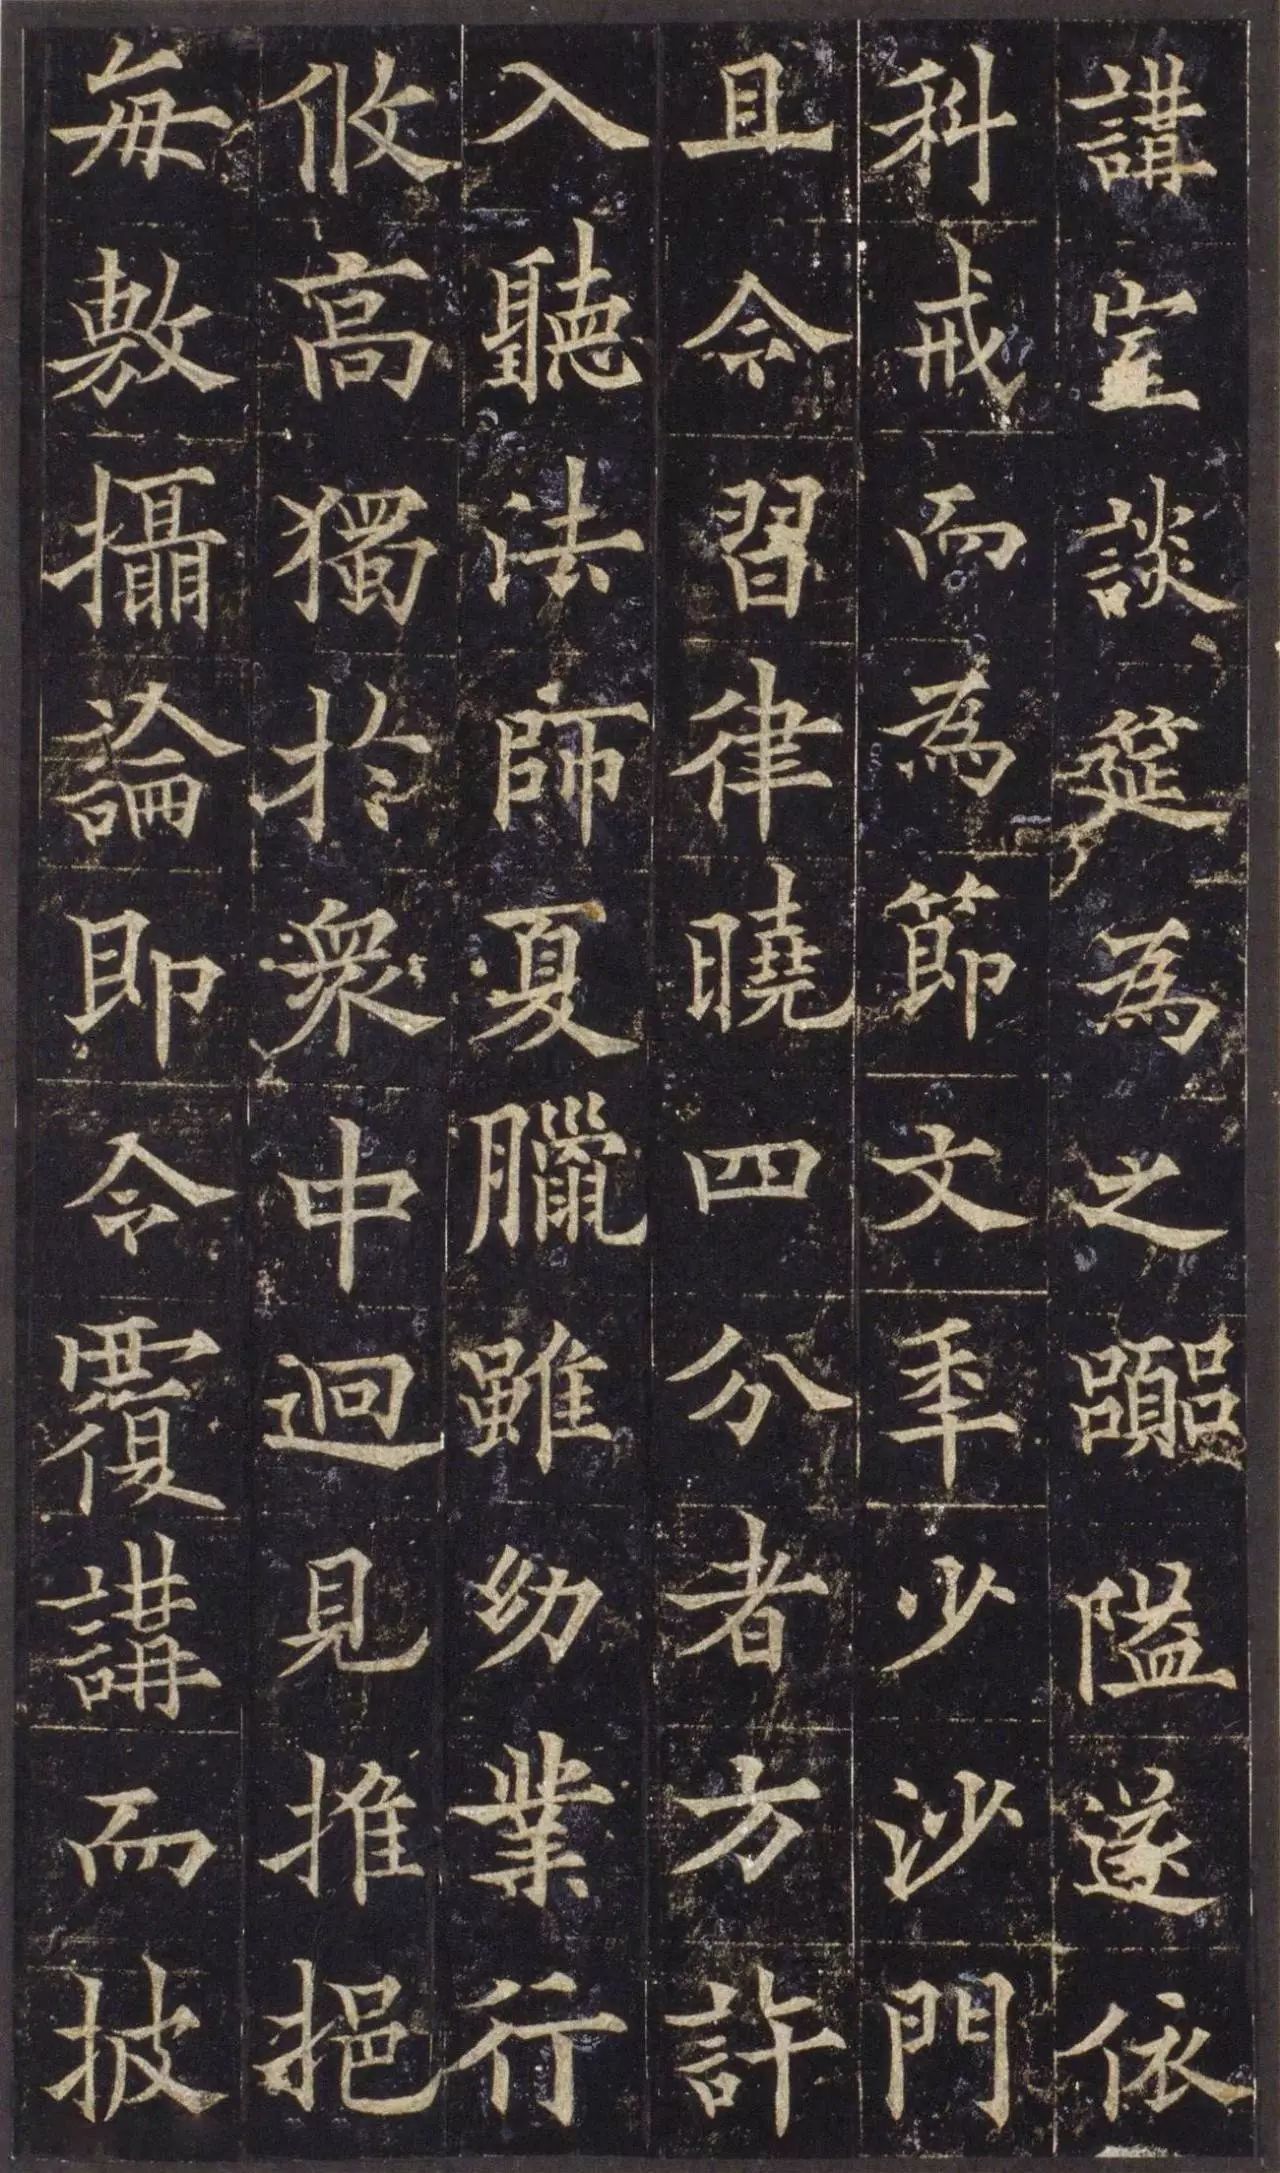 講室談筵為之囂隘遂依
科戒而為節文年少沙門
且令習律曉四分者方許
入聽法師夏臘雖幼業行
攸高獨於衆中迥見推挹
每敷攝論即令覆講而披